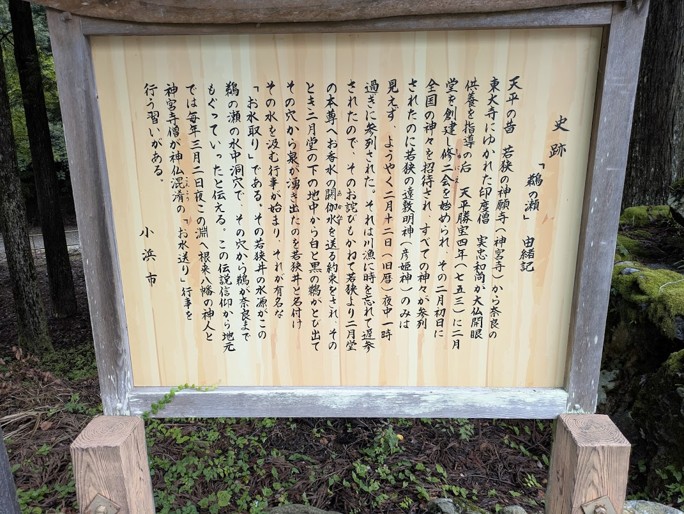 史跡
「鵜の瀬」 由緒記
天平の昔 若狭の神願寺(神宮寺)から奈良の
東大寺にゆかれた印度僧 実忠和尚が大仏開眼
供養を指導の后 天平勝宝四年(七五三)に二月
堂を創建し修二会を始められ、その二月初日に
全国の神々を招待され、すべての神々が参列
されたのに若狭の遠敷明神(彦姫神)のみは
見えず、ようやく二月十二日(旧暦)夜中一時
過ぎに参列された。それは川漁に時を忘れて遅参
されたので、そのお詫びもかねて若狭より二月堂
の本尊へお香水の閼伽水を送る約束をされ、その
とき二月堂の下の地中から白と黒の鵜がとび出て
その穴から泉が湧き出たのを若狭井と名付け
その水を汲む行事が始まり、それが有名な
「お水取り」である。その若狭井の水源がこの
鵜の瀬の水中洞穴で、その穴から鵜が奈良まで
もぐっていったと伝える。この伝説信仰から地元
では毎年三月二日夜、この淵へ根来八幡の神人と
神宮寺僧が神仏混淆の「お水送り」行事を
行う習いがある。
小浜市